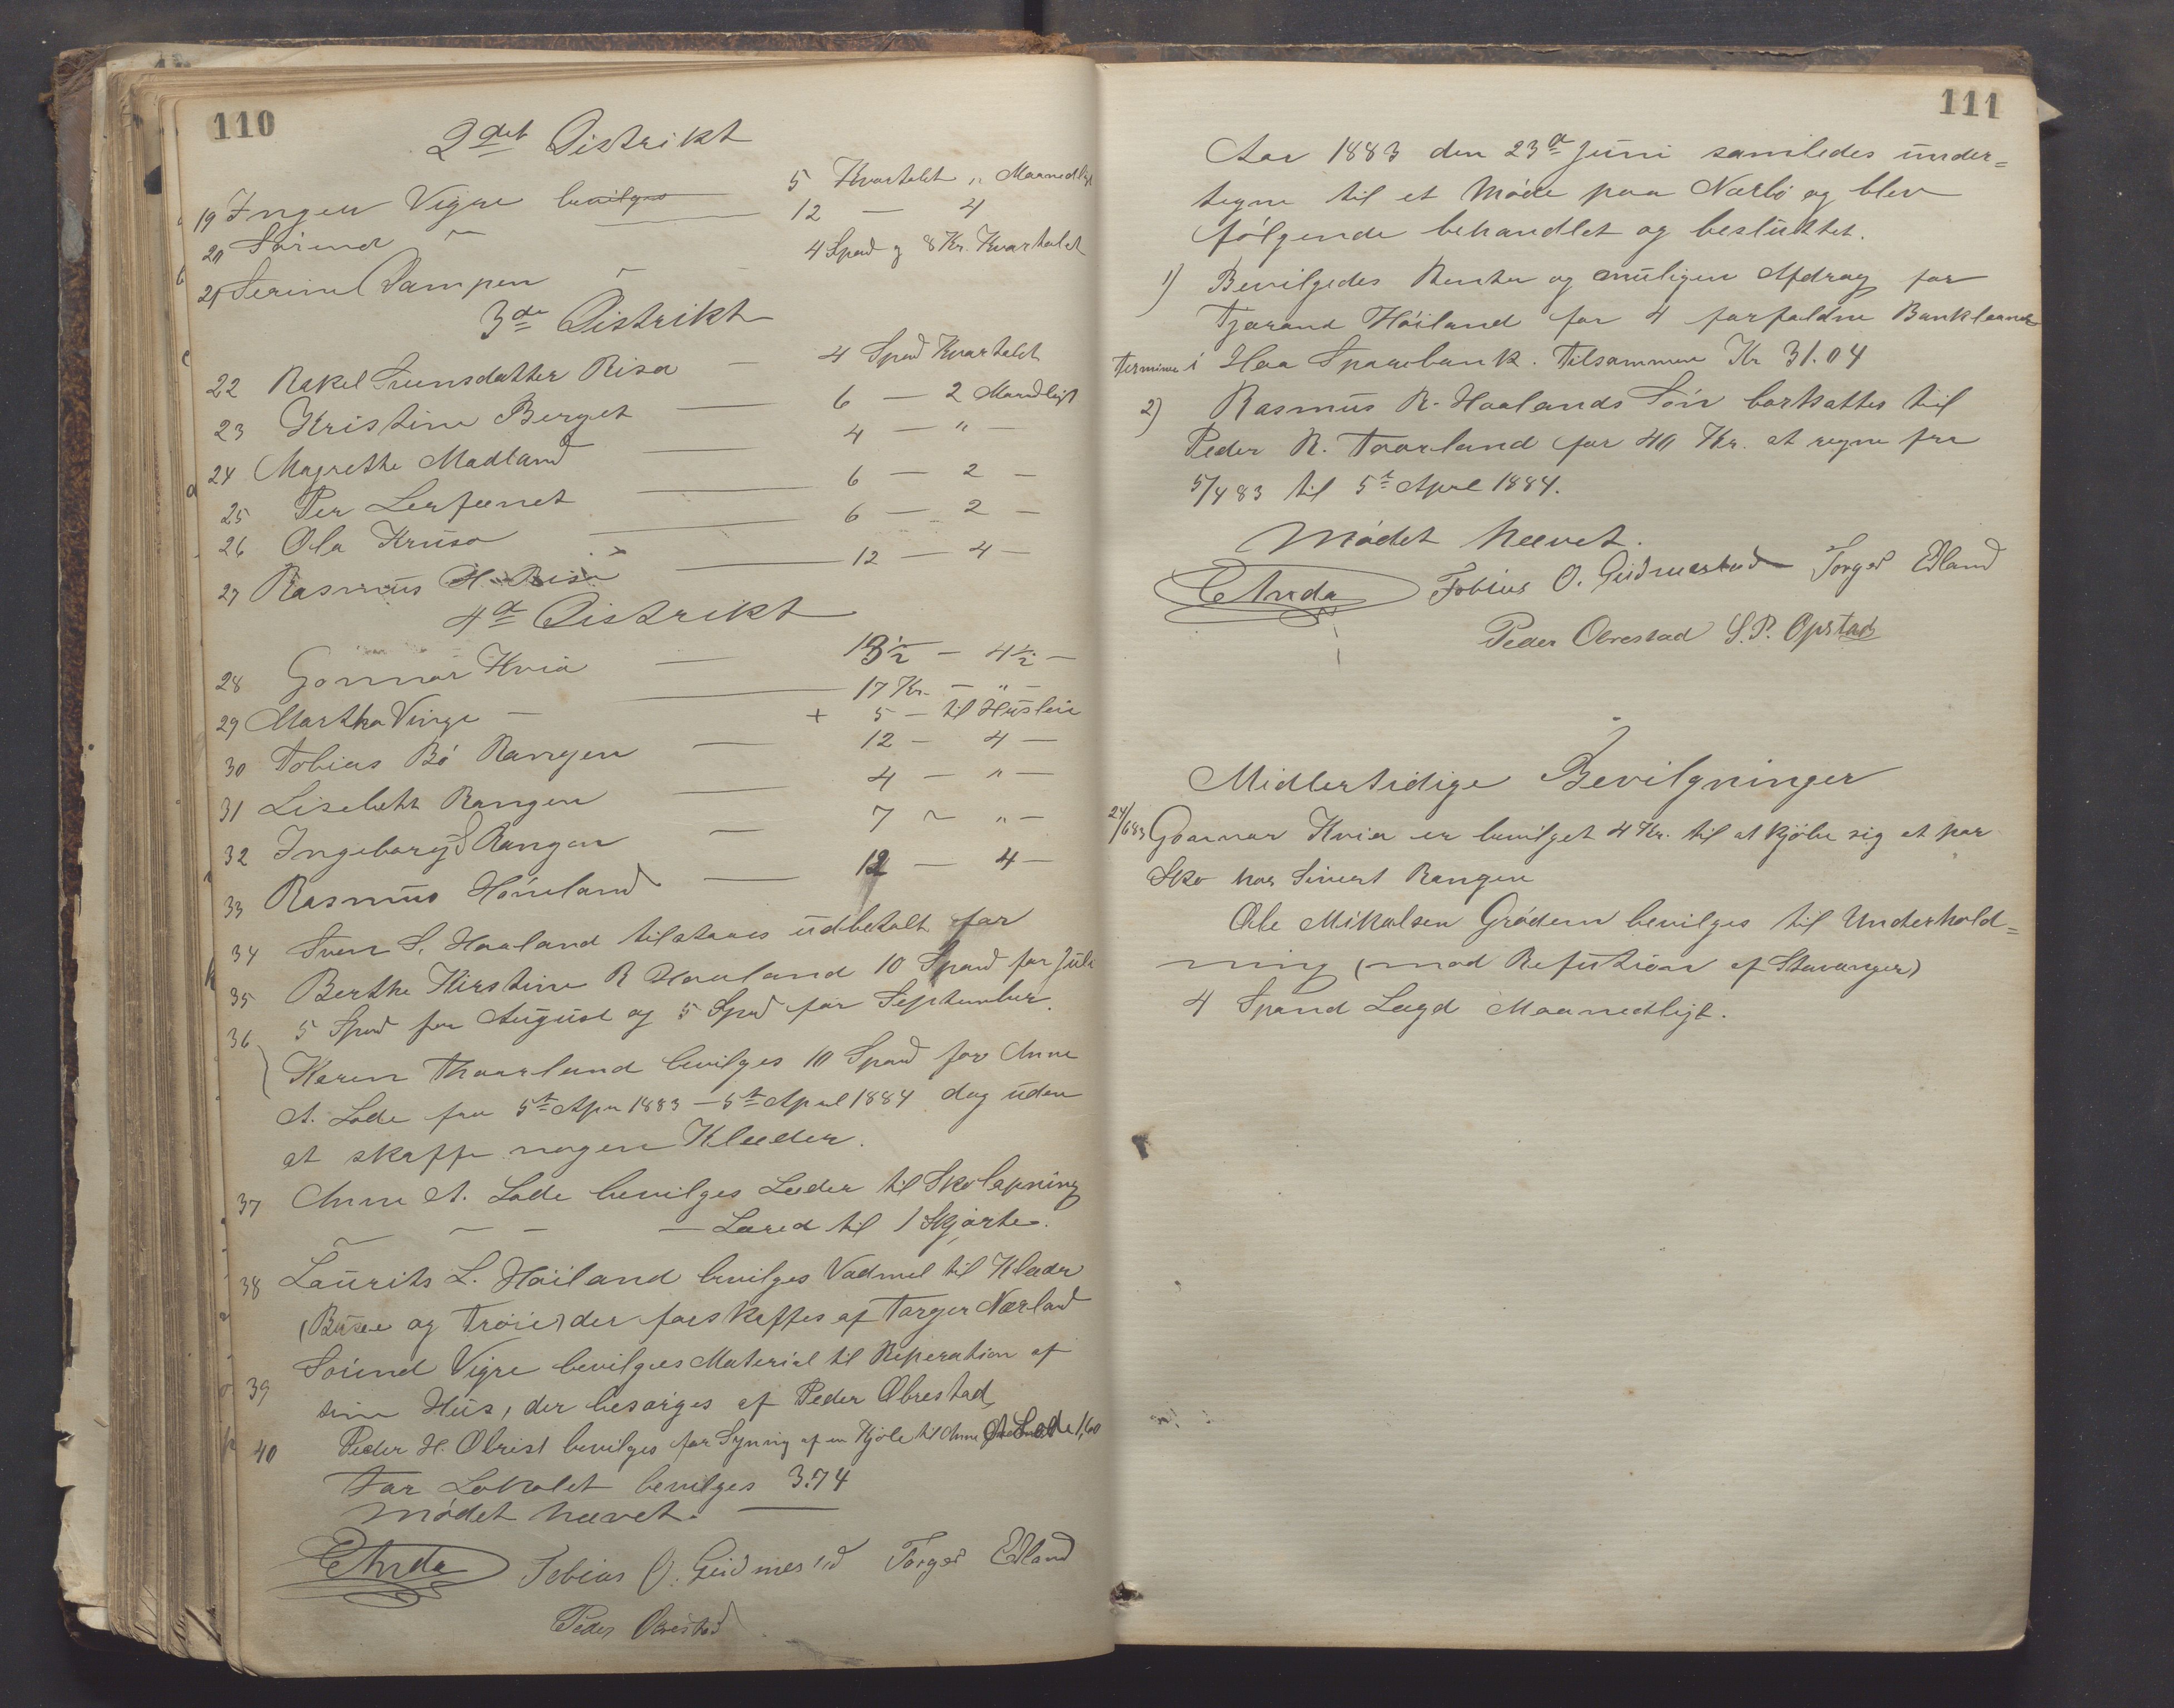 110
2det Distrikt
19 Inger Vigre bevilges 5 Kvartalet „ Maanedligt
20 Sórend — 12 — 4
21 Serine Dampen — 4 Spand og 8 Kr. Kvartalet
3de Distrikt
22 Rakel Svensdatter Risa — 4 Spand Kvartalet
23 Kristine Berget — 6 — 2 Maandligt
24 Magrethe Madland — 4 — „ —
25 Per — 6 — 2 —
26 Ola Krusa — 6 — 2 —
27 Rasmus H. Risa — 12 — 4 —
4de Distrikt
28 Gonnar Kvia — 13½ — 4½ —
29 Martha Vinge — 17 Kr. — „ —
+ 5 — til Husleie
30 Tobias Bó Rangen — 12 — 4 —
31 Lisebeth Rangen — 4 — „ —
32 Ingeborg S Rangen — 7 — „ —
33 Rasmus Hóineland — 12 — 4 —
34 Sven S. Haaland tilstaaes udbetalt for
35 Berthe Kirstine R Haaland 10 Spand for Juli
36 5 Spand for August og 5 Spand for September.
Karen Thaarland bevilges 10 Spand for Anne
A. Lode fra 5te Apr 1883 — 5te April 1884 dog uden
at skaffe nogen Klæder.
37 Anne A. Lode bevilges Læder til Skolapning
— — — Lærred til 1 Skjorte.
38 Laurits L. Hóiland bevilges Vadmel til Klæder
(Buxe og Tróie) der forskaffes af Torger Nærland
39 Sóiend Vigre bevilges Material til Reperation af
sine Hus, der besórges af Peder Obrestad
40 Peder H. Obrest bevilges for Syning af en Kjole til Anne A Lode 1,60
For Lokalet bevilges 3.74
Módet hævet.
E Anda Tobias O. Gudmestad Torger Edland
Peder Obrestad
111
Aar 1883 den 23de Juni samledes under=
tegne til et Móde paa Nærbó og blev
fólgende behandlet og besluttet.
1) Bevilgedes Renter og muligen Afdrag for
Tjerand Hóiland for 4 forfaldne Banklaans
Terminer i Haa Sparebank. Tilsammen Kr 31.04
2) Rasmus R. Haalands Són bortsattes til
Peder R. Taarland for 40 Kr. at regne fra
5/4 83 til 5te April 1884.
Módet hævet.
E Anda Tobias O. Gudmestad Torger Edland
Peder Obrestad S. P. Opstad
Midlertidige Bevilgninger
24/6 83 Goannar Kvia er bevilget 4 Kr. til at kjóbe sig et par
Sko hos Sivert Rangen
Ole Mikalsen Gródem bevilges til Underhold=
ning (mod Refution af Stavanger)
4 Spand Lægd Maanedligt.